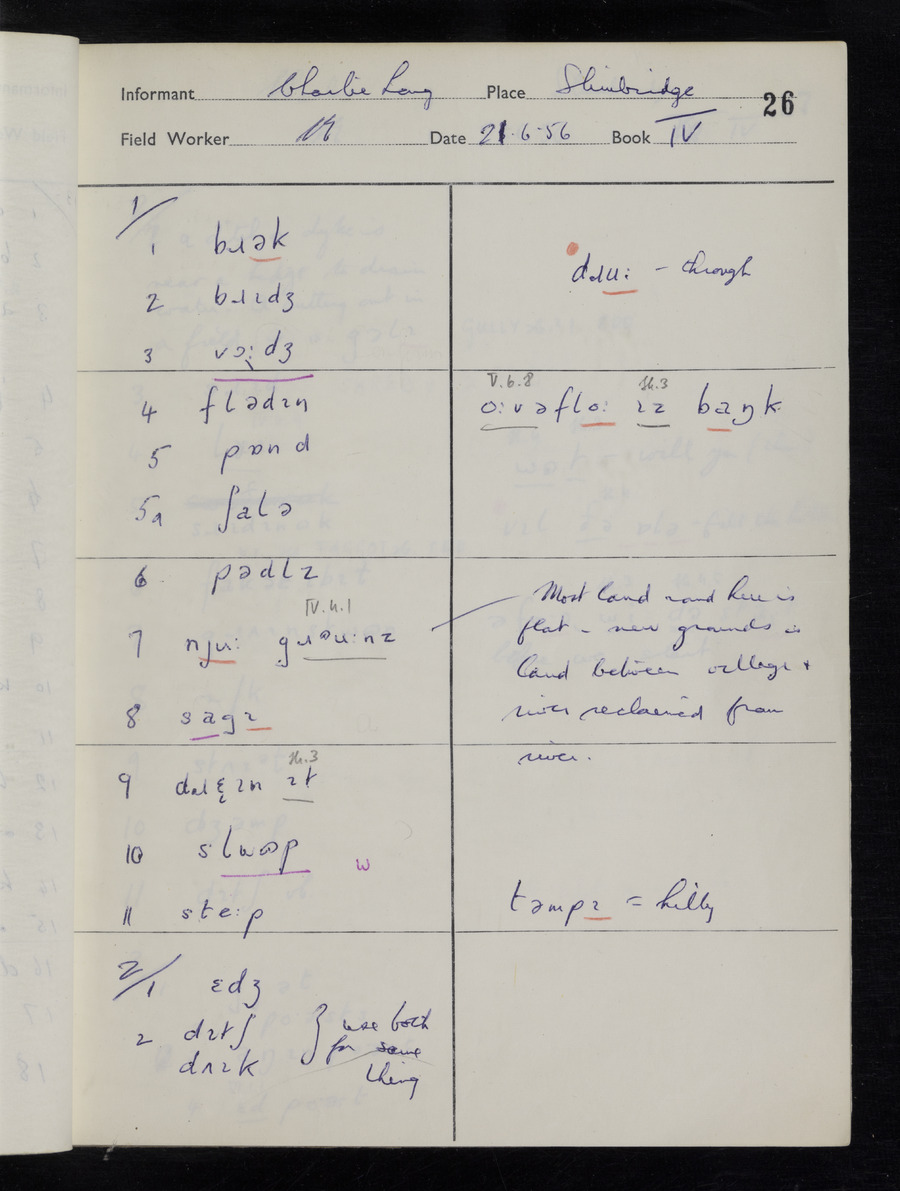 Informant Charlie Long Place Slimbridge 26
Field Worker Date 21·6·56 Book IV
1/
1 bɹək
dɹu: – through
2 bɹɪdʒ
3 vɔ:dʒ
V.6.8 Th.3
4 flədɪn
o:vəflo: ɪz baŋk
5 pɒnd
5a ʃalə
6 pədlz
IV.4.1
7 nju: gɹəu:nz
Most land round here is
flat – new grounds is
land between village +
river reclaimed from
river.
8 sagɪ
Th.3
9 dɹɛɪn ɪt
10 slwəp w
11 ste:p
təmpɪ = hilly
2/1 ɛdʒ
2 dɪtʃ } use both
dɪɪk for same
thing